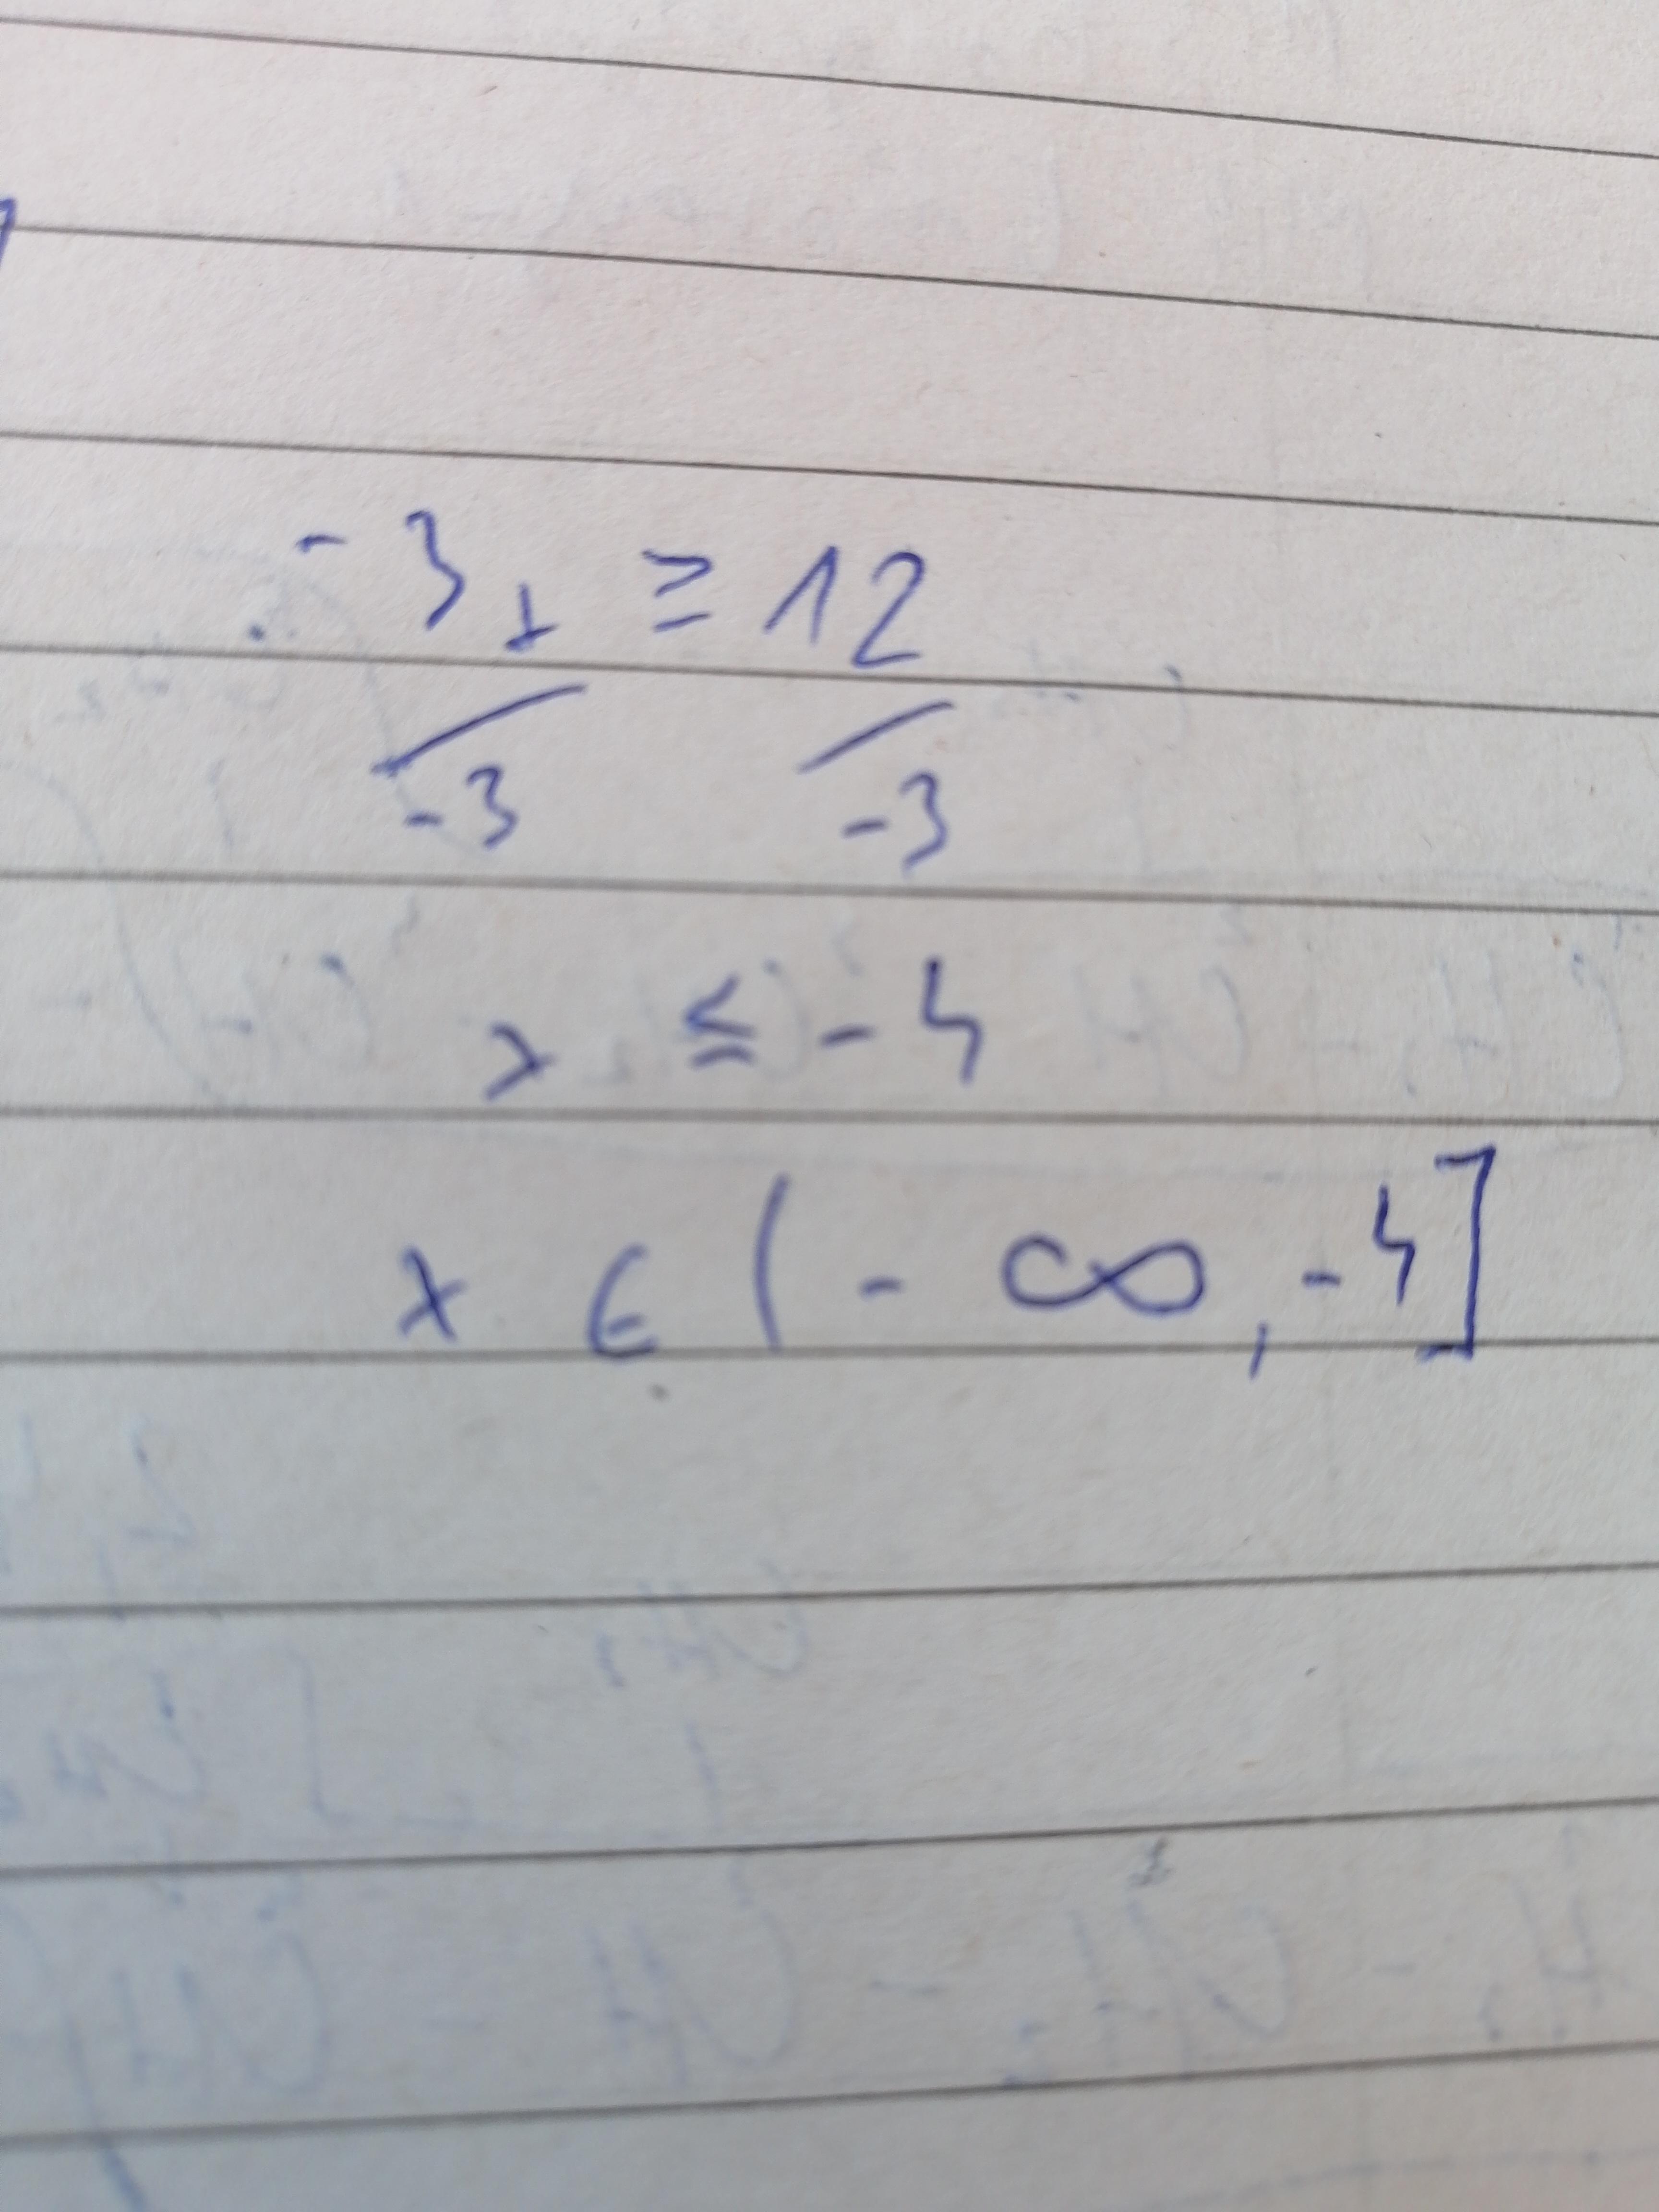 -3x ≥ 12
-3 -3
x ≤ -4
x ∈ (-∞, -4]